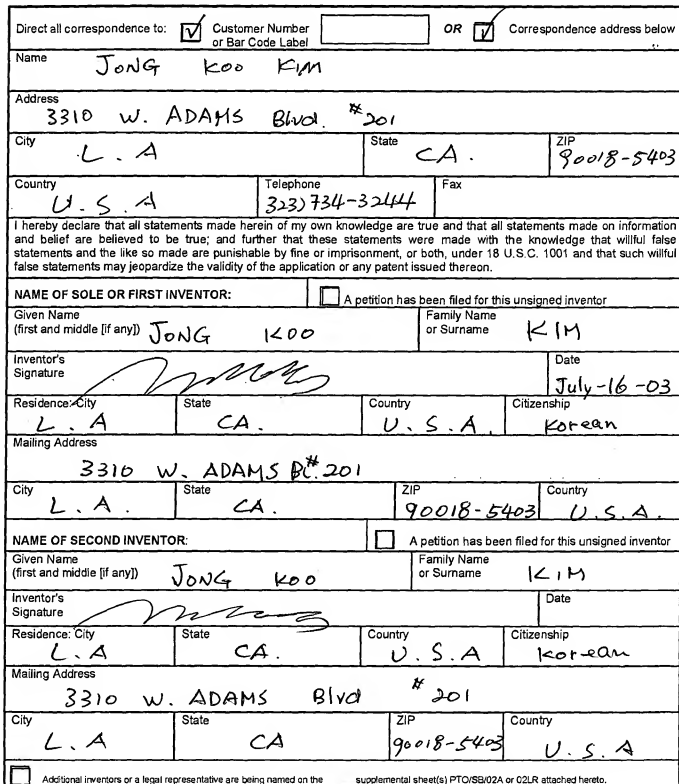 Direct all correspondence to: Customer Number or Bar Code Label OR Correspondence address below
Name JONG KOO KIM
Address
3310 W. ADAMS Blvd. #201
City L.A State CA. ZIP 90018-5403
Country U.S.A Telephone 323)734-3244 Fax
I hereby declare that all statements made herein of my own knowledge are true and that all statements made on information
and belief are believed to be true; and further that these statements were made with the knowledge that willful false
statements and the like so made are punishable by fine or imprisonment, or both, under 18 U.S.C. 1001 and that such willful
false statements may jeopardize the validity of the application or any patent issued thereon.
NAME OF SOLE OR FIRST INVENTOR: A petition has been filed for this unsigned inventor
Given Name (first and middle [if any]) JONG KOO Family Name or Surname KIM
Inventor's Signature Date July-16-03
Residence: City L.A State CA. Country U.S.A. Citizenship Korean
Mailing Address
3310 W. ADAMS Bl. #201
City L.A. State CA. ZIP 90018-5403 Country U.S.A.
NAME OF SECOND INVENTOR: A petition has been filed for this unsigned inventor
Given Name (first and middle [if any]) JONG KOO Family Name or Surname KIM
Inventor's Signature Date
Residence: City L.A State CA. Country U.S.A Citizenship Korean
Mailing Address
3310 W. ADAMS Blvd #201
City L.A State CA ZIP 90018-5403 Country U.S.A
Additional inventors or a legal representative are being named on the supplemental sheet(s) PTO/SB/02A or 02LR attached hereto.